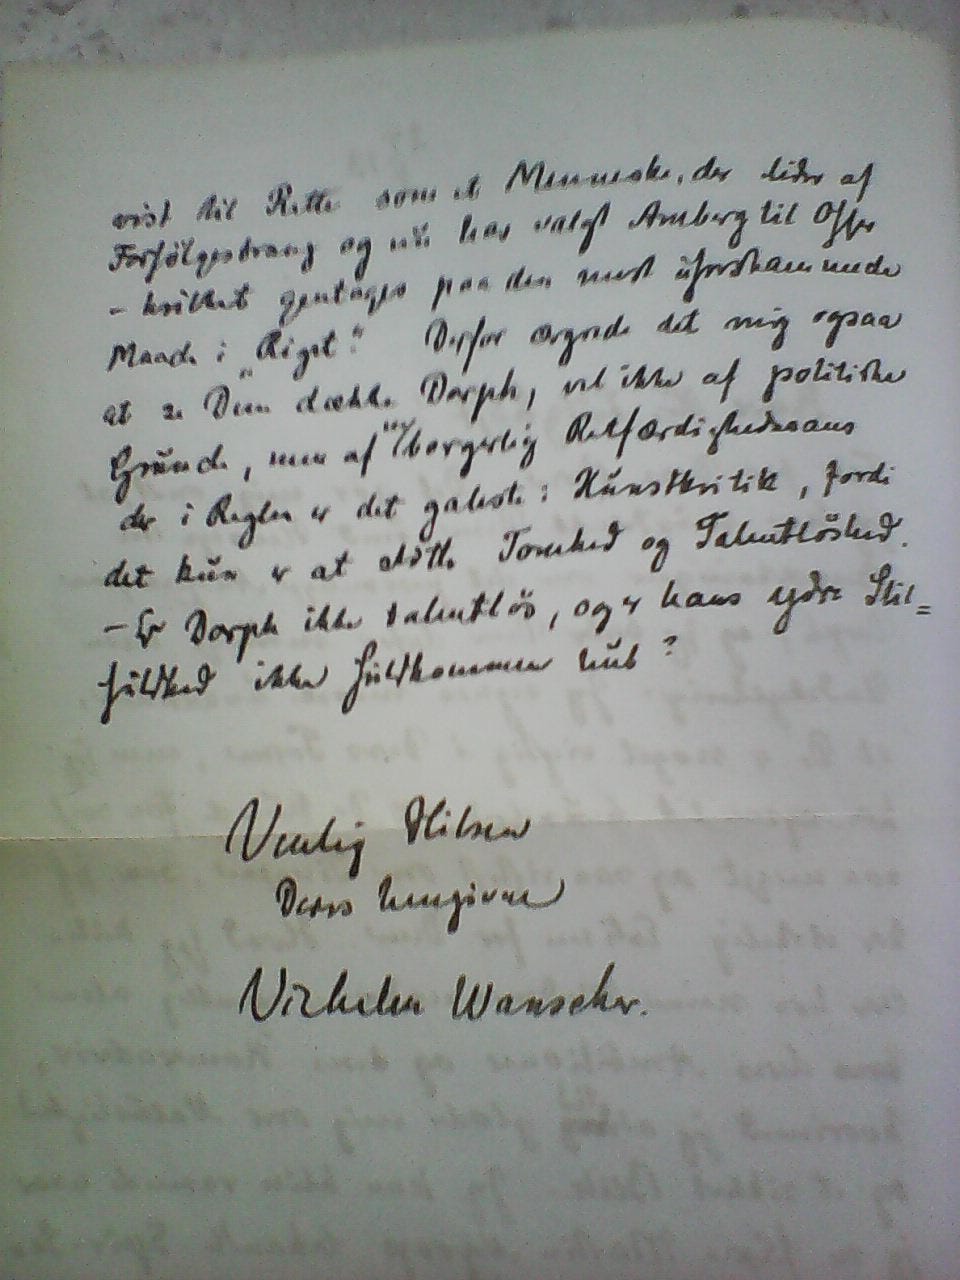 vist til Rette som et Menneske, der lider af
Forfölgestrang og nu har valgt Amberg til Offer
– hvilket gentages paa den mest uforskammede
Maade i "Riget". Derfor ærgrede det mig ogsaa
at De dækker Dorph, vel ikke af politiske
Grunde, men af borgerlig Retfærdighedssans
der i Reglen er det galeste i Kunstkritik, fordi
det kun er at støtte Tomhed og Talentlöshed.
– Er Dorph ikke talentlös, og er hans ydre Stil=
fuldhed ikke fuldkommen hul?
Venlig Hilsen
Deres hengivne
Vilhelm Wanscher.